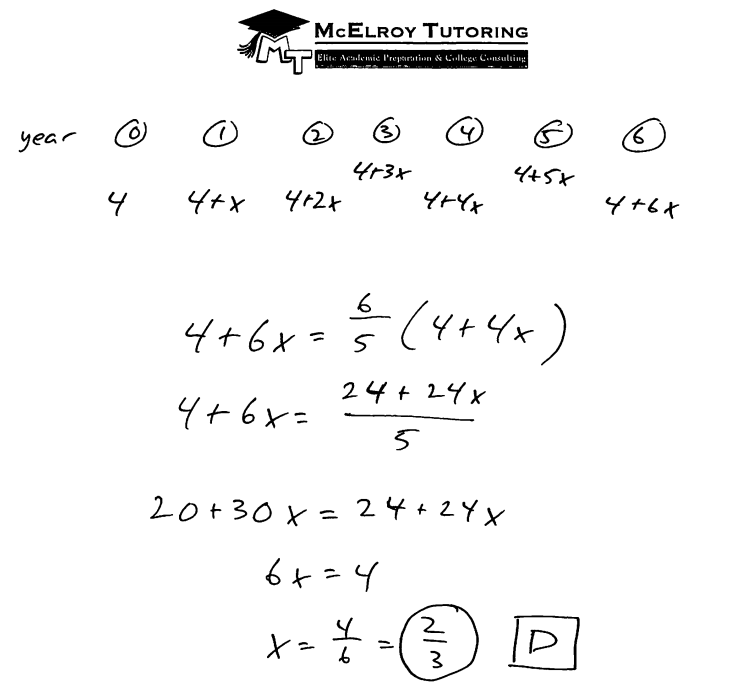 McELROY TUTORING
MT
Elite Academic Preparation & College Consulting
year 0 1 2 3 4 5 6
4 4+x 4+2x 4+3x 4+4x 4+5x 4+6x
4+6x = 6/5 (4+4x)
4+6x = 24+24x / 5
20+30x = 24+24x
6x = 4
x = 4/6 = 2/3 D